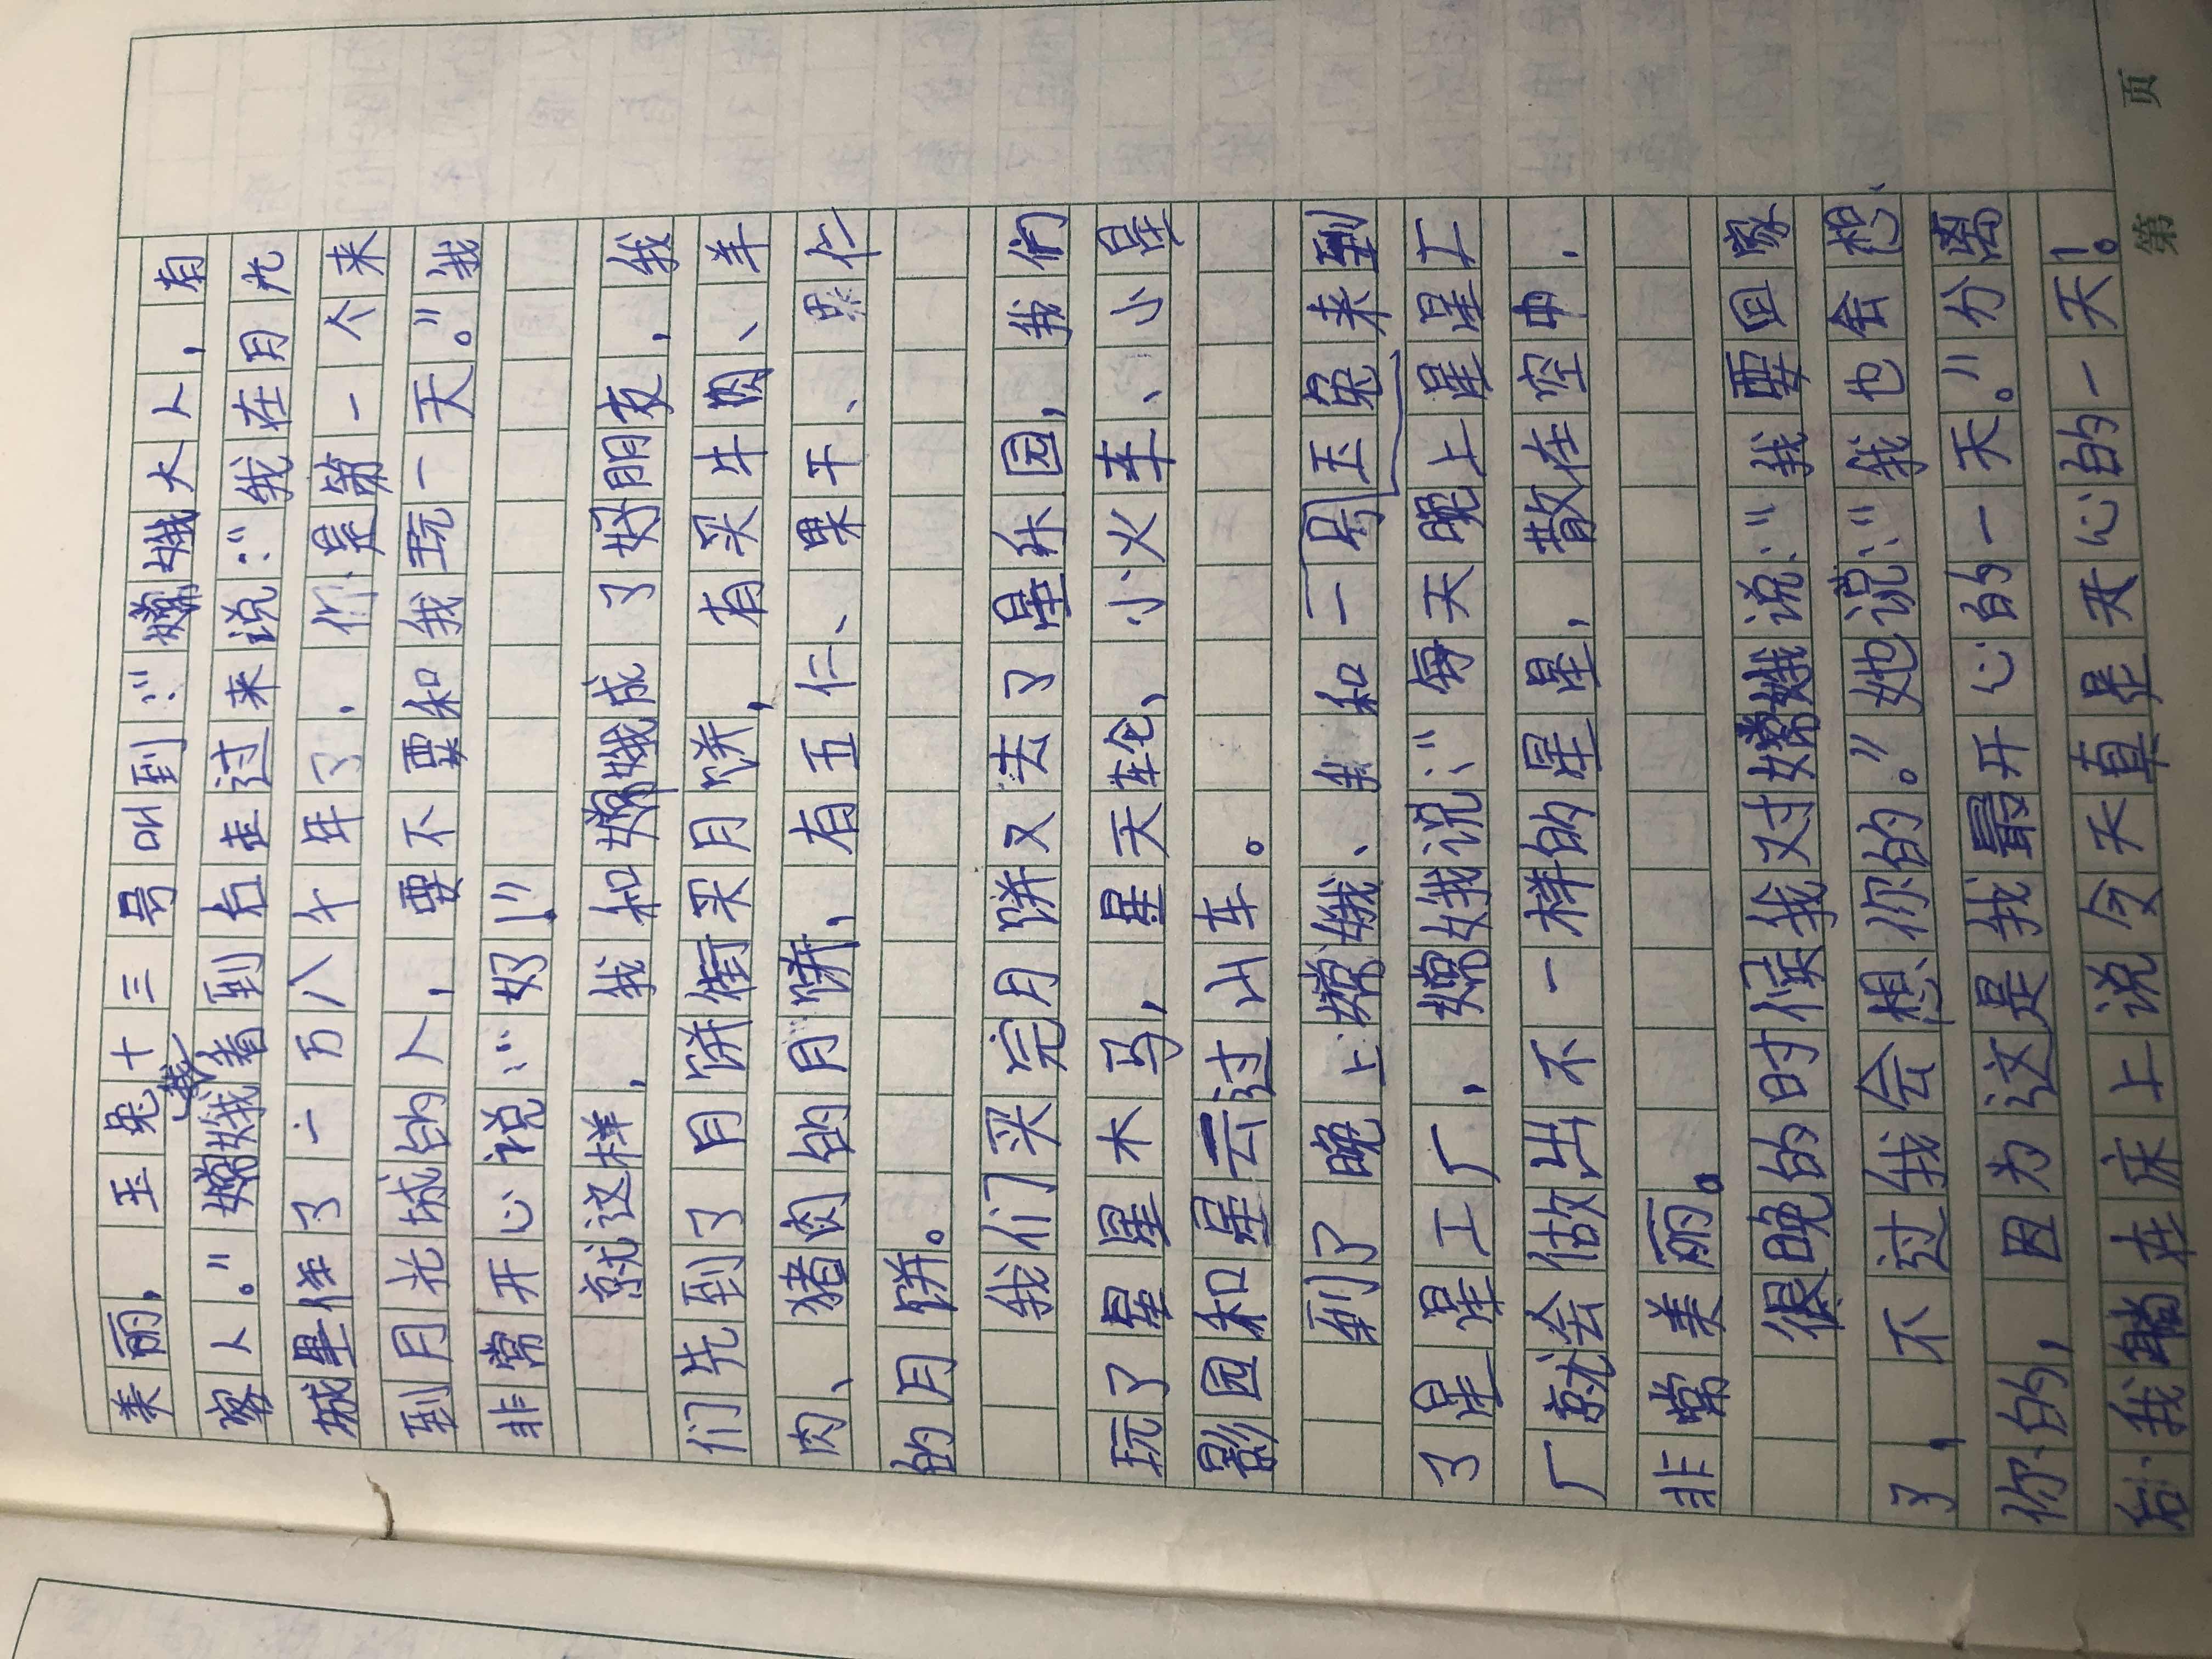 美丽,玉兔十三号叫到:"嫦娥大人,有
客人。"嫦娥看到我后走过来说:"我在月光
城里住了一万八千年了,你是第一个来
到月光城的人,要不要和我玩一天。"我
非常开心说:"好!"
就这样,我和嫦娥成了好朋友,我
们先到了月饼街买月饼,有买牛肉、羊
肉、猪肉的月饼,有五仁、果干、果仁
的月饼。
我们买完月饼又去了星乐园,我们
玩了星星木马,星天轮,小火车、小星
影园和星云过山车。
到了晚上嫦娥、我和一只玉兔来到
了星星工厂,嫦娥说:"每天晚上星星工
厂就会做出不一样的星星,散在空中.
非常美丽。
很晚的时候我对嫦娥说:"我要回家
了,不过我会想你的。"她说:"我也会想
你的,因为这是我最开心的一天。"分离
后我躺在床上说今天真是开心的一天!。
第 页